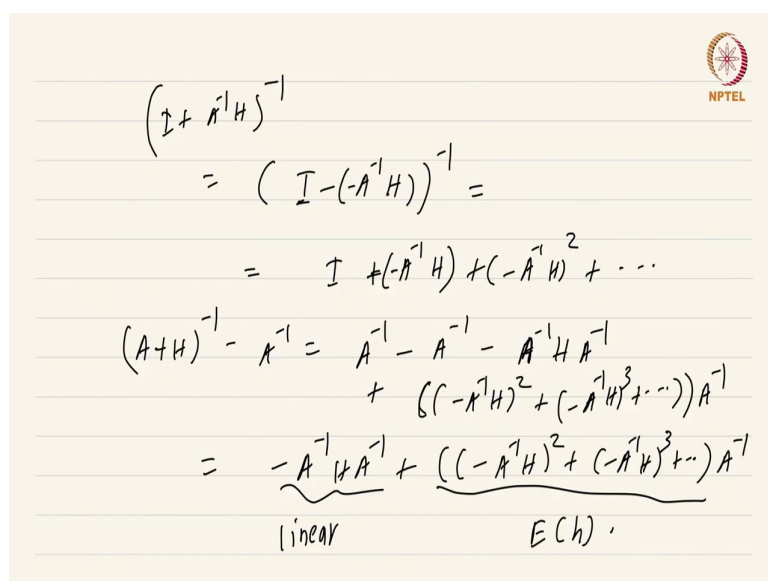 NPTEL
(I + A⁻¹H)⁻¹
= (I-(-A⁻¹H))⁻¹ =
= I +(-A⁻¹H) +(-A⁻¹H)² + ...
(A+H)⁻¹ - A⁻¹ = A⁻¹ - A⁻¹ - A⁻¹HA⁻¹
+ (((-A⁻¹H)² + (-A⁻¹H)³+...))A⁻¹
= -A⁻¹HA⁻¹ + ((-A⁻¹H)² + (-A⁻¹H)³+..)A⁻¹
linear E(h).